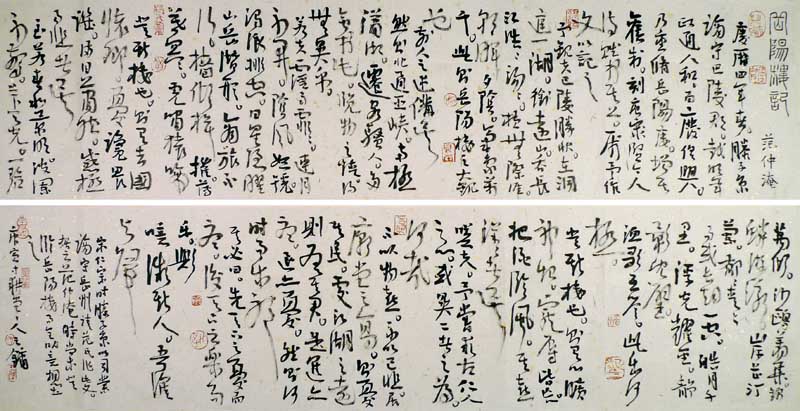 岳陽樓記
范仲淹
慶曆四年春。滕子京
謫守巴陵郡。越明年
政通人和。百廢俱興。
乃重修岳陽樓。增其
舊制。刻唐賢今人
詩賦於其上。屬予作
文以記之
予觀夫巴陵勝狀。在洞
庭一湖。銜遠山。吞長
江。浩浩湯湯。橫無際涯。
朝暉夕陰。氣象萬
千。此則岳陽樓之大觀
也
前人之述備矣
然則北通巫峽。南極
瀟湘。遷客騷人。多
會於此。覽物之情。得
無異乎
若夫霪雨霏霏。連月
不開。陰風怒號。
濁浪排空。日星隱曜
山岳潛形。商旅不
行。檣傾楫摧。薄
暮冥冥。虎嘯猿啼
登斯樓也。則有去國
懷鄉。憂讒畏
譏。滿目蕭然。感極
而悲者矣
至若春和景明。波瀾
不驚。上下天光。一碧
萬頃。沙鷗翔集。錦
鱗游泳。岸芷汀
蘭。郁郁青青
而或長煙一空。皓月千
里。浮光耀金。靜
影沈璧。
漁歌互答。此樂何
極。
登斯樓也。則有心曠
神怡。寵辱皆忘。
把酒臨風。其喜
洋洋者矣
嗟夫。予嘗求古仁人
之心。或異二者之為。
何哉
不以物喜。不以己悲。居
廟堂之高。則憂
其民。處江湖之遠
則憂其君。是進亦
憂。退亦憂。然則何
時而樂耶
其必曰。先天下之憂而
憂。後天下之樂而
樂歟
噫。微斯人。吾誰
與歸